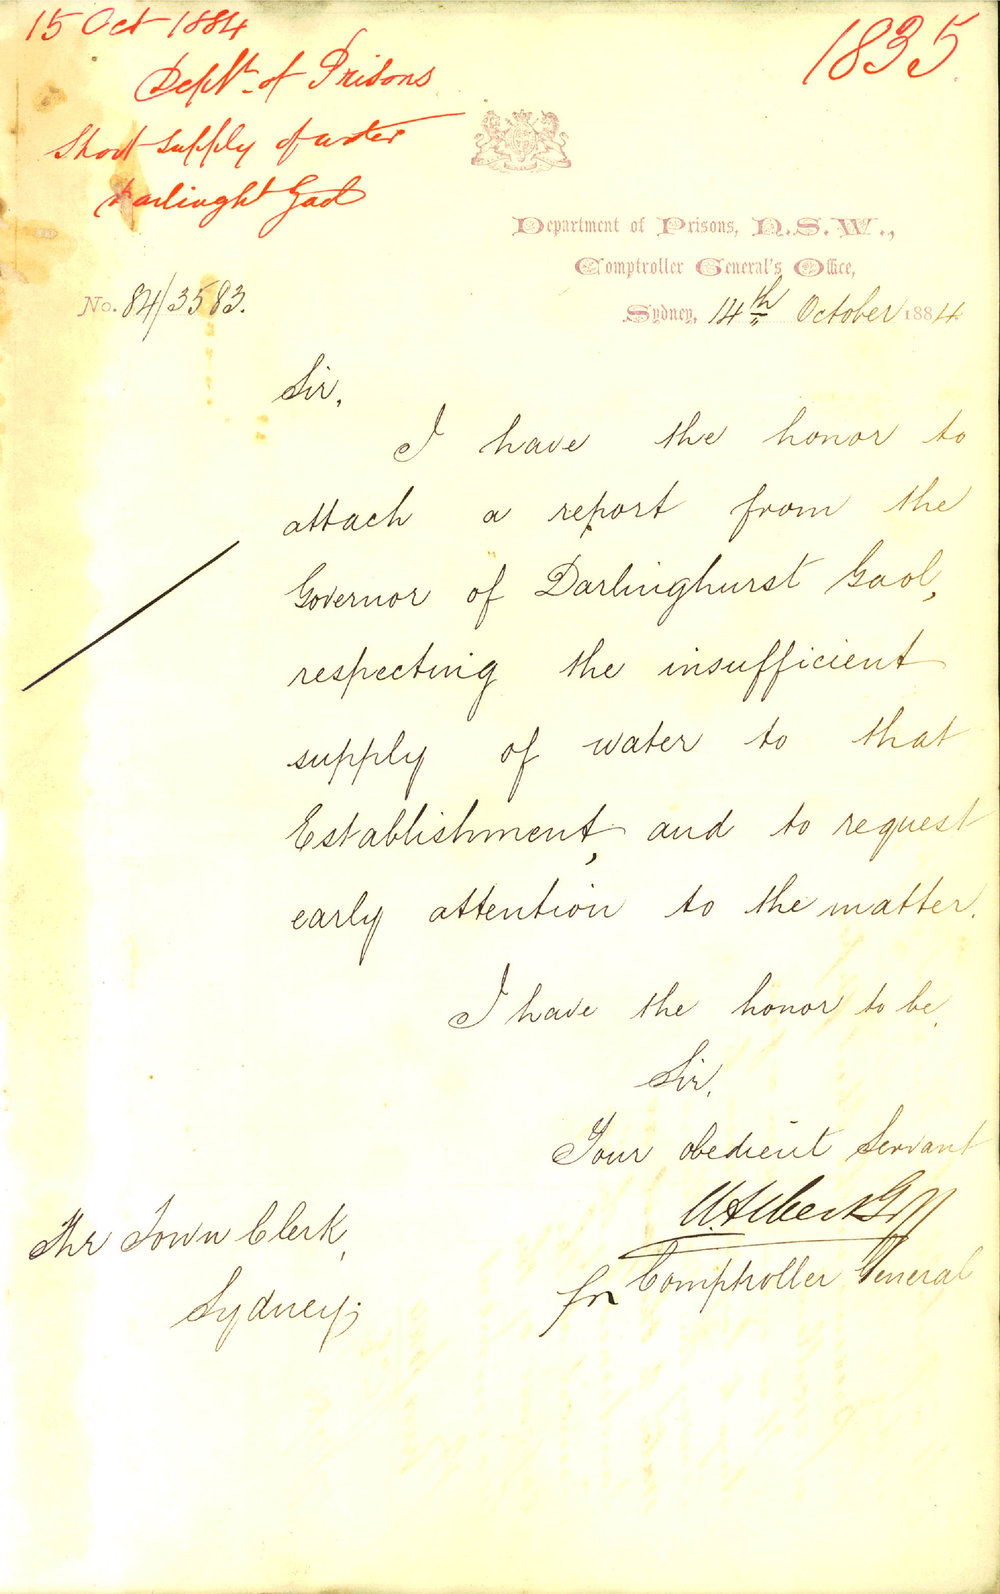 15 Oct 1884
1835
Dept. of Prisons
Short supply of water
Darlinght Gaol
Department of Prisons, N.S.W.,
Comptroller General's Office,
No. 84/3583.
Sydney, 14th October 1884
Sir,
I have the honor to
attach a report from the
Governor of Darlinghurst Gaol,
respecting the insufficient
supply of water to that
Establishment, and to request
early attention to the matter.
I have the honor to be,
Sir,
Your obedient Servant
for Comptroller General
The Town Clerk,
Sydney;